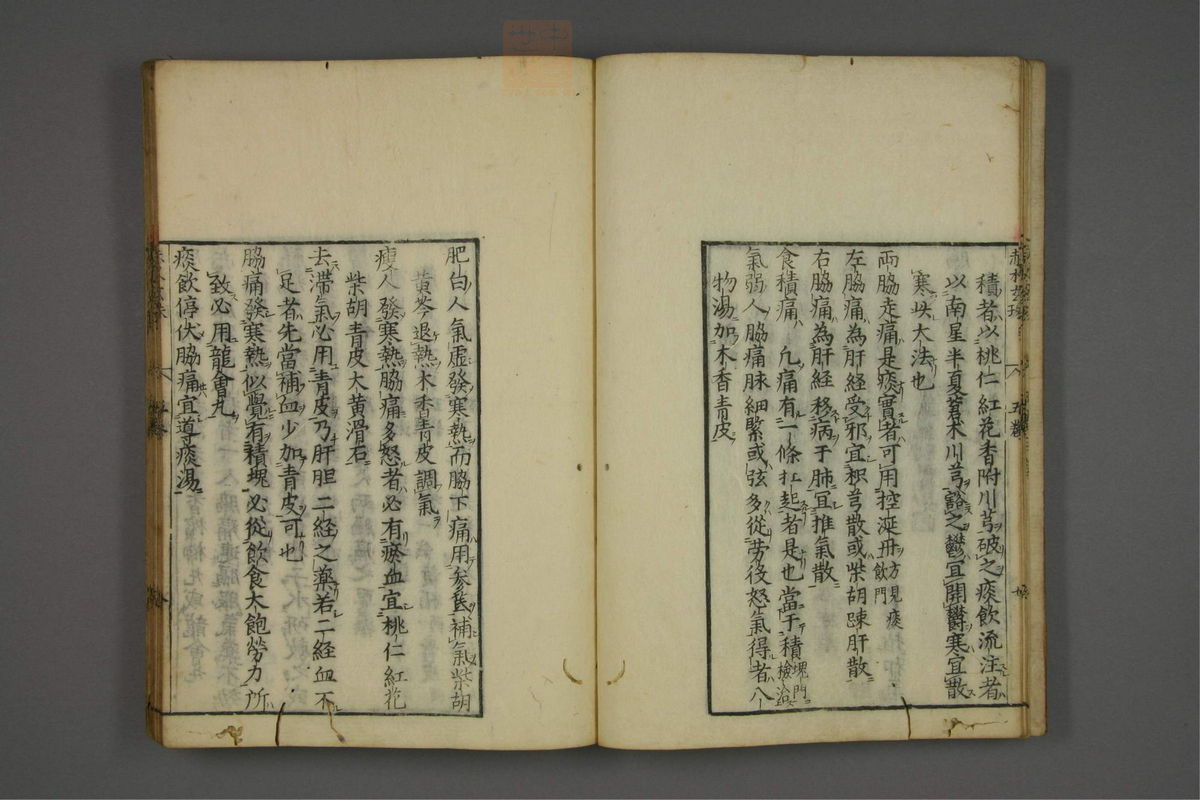 積者以桃仁紅花香附川芎破之痰飲流注者
以南星半夏蒼朮川芎豁之鬱宜開鬱寒宜散
寒此大法也
兩脇走痛是痰實者可用控涎丹方見痰飲門
左脇痛為肝經受邪宜枳芎散或柴胡踈肝散
右脇痛為肝経移病于肺宜推氣散
食積痛凡痛有一條扛起者是也當于積塊門檢治
氣弱人脇痛脉細緊或弦多從劳役怒氣得者八
物湯加木香青皮
肥白人氣虛發寒熱而脇下痛用參芪補氣柴胡
黄芩退熱木香青皮調氣
瘦人發寒熱脇痛多怒者必有瘀血宜桃仁紅花
柴胡青皮大黄滑石
去滞氣必用青皮乃肝胆二経之藥若二經血不
足者先當補血少加青皮可也
脇痛發寒熱似覺有積塊必從飲食太飽勞力所
致必用龍會丸
痰飲停伏脇痛宜導痰湯